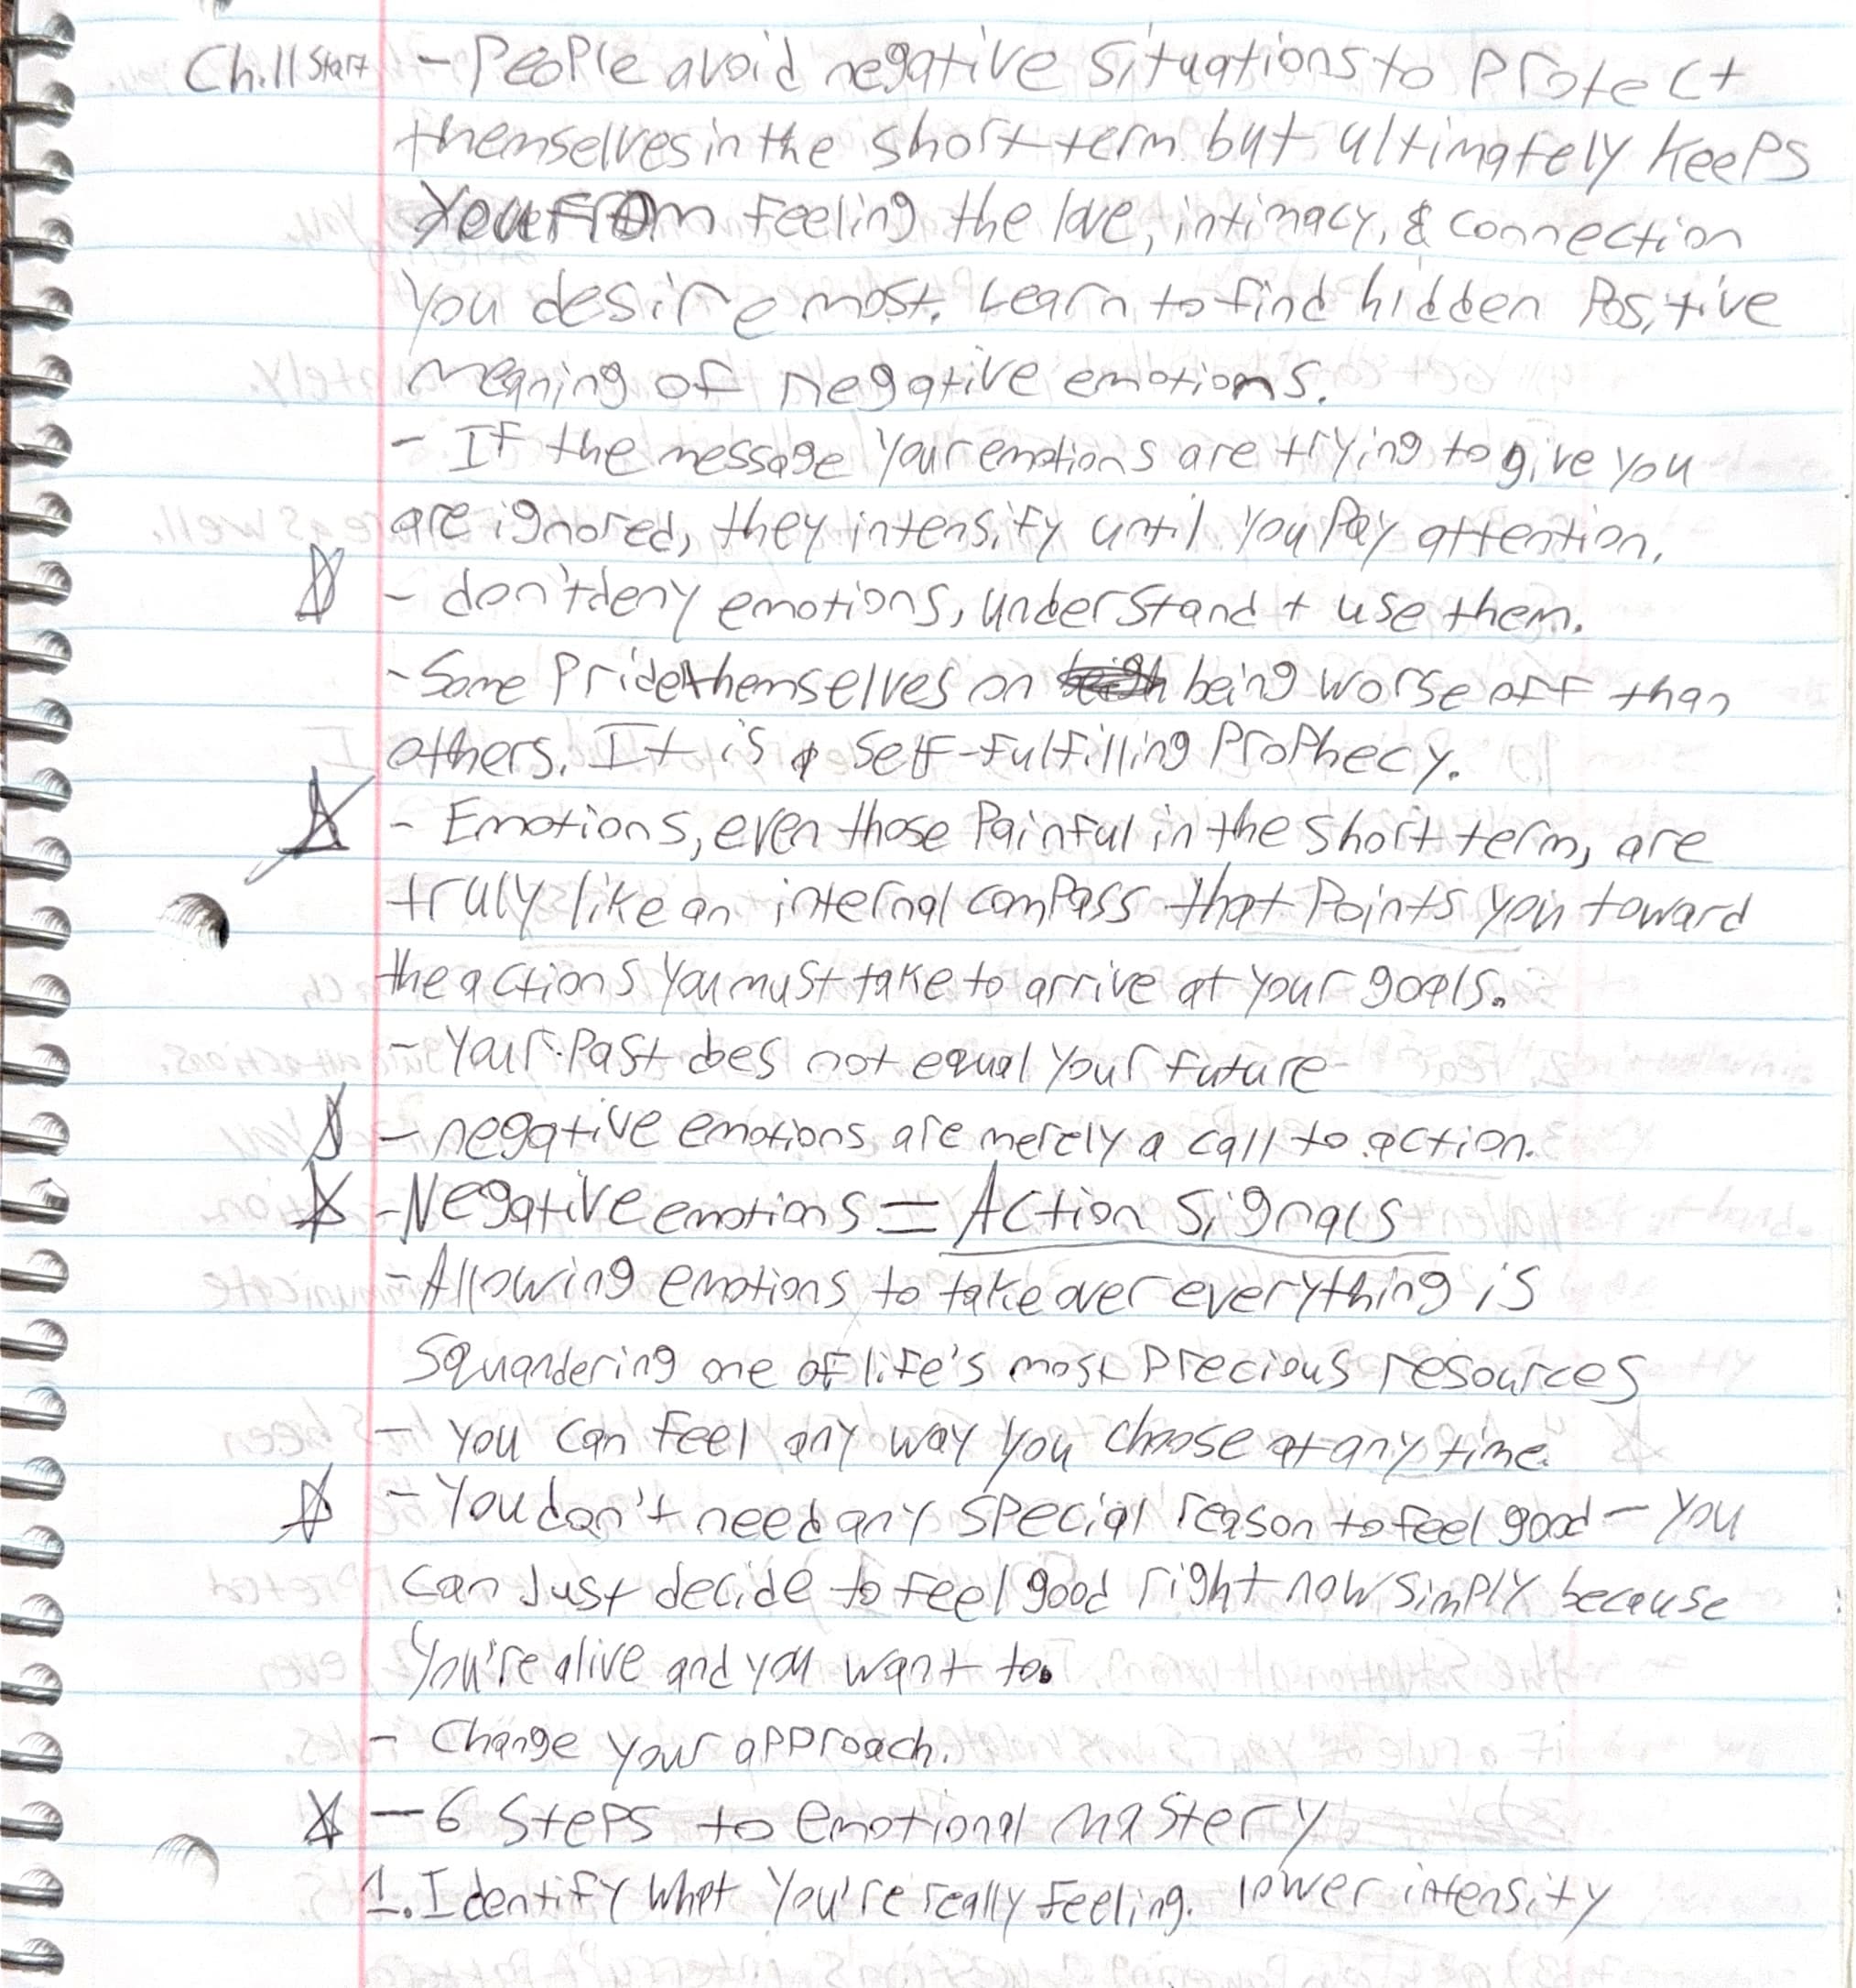 Chill Start - People avoid negative situations to protect
themselves in the short term but ultimately keeps
you from feeling the love, intimacy, & connection
you desire most. Learn to find hidden positive
meaning of negative emotions.
- If the message your emotions are trying to give you
are ignored, they intensify until you pay attention.
☆ - don't deny emotions, understand + use them.
- Some pride themselves on being worse off than
others. It is a self-fulfilling prophecy.
☆ - Emotions, even those painful in the short term, are
truly like an internal compass that points you toward
the actions you must take to arrive at your goals.
- Your past does not equal your future
☆ - negative emotions are merely a call to action.
☆ - Negative emotions = Action Signals
- Allowing emotions to take over everything is
squandering one of life's most precious resources
- you can feel any way you choose at any time.
☆ - You don't need any special reason to feel good - you
can just decide to feel good right now simply because
you're alive and you want to.
- Change your approach.
☆ - 6 Steps to emotional mastery
1. Identify what you're really feeling. lower intensity